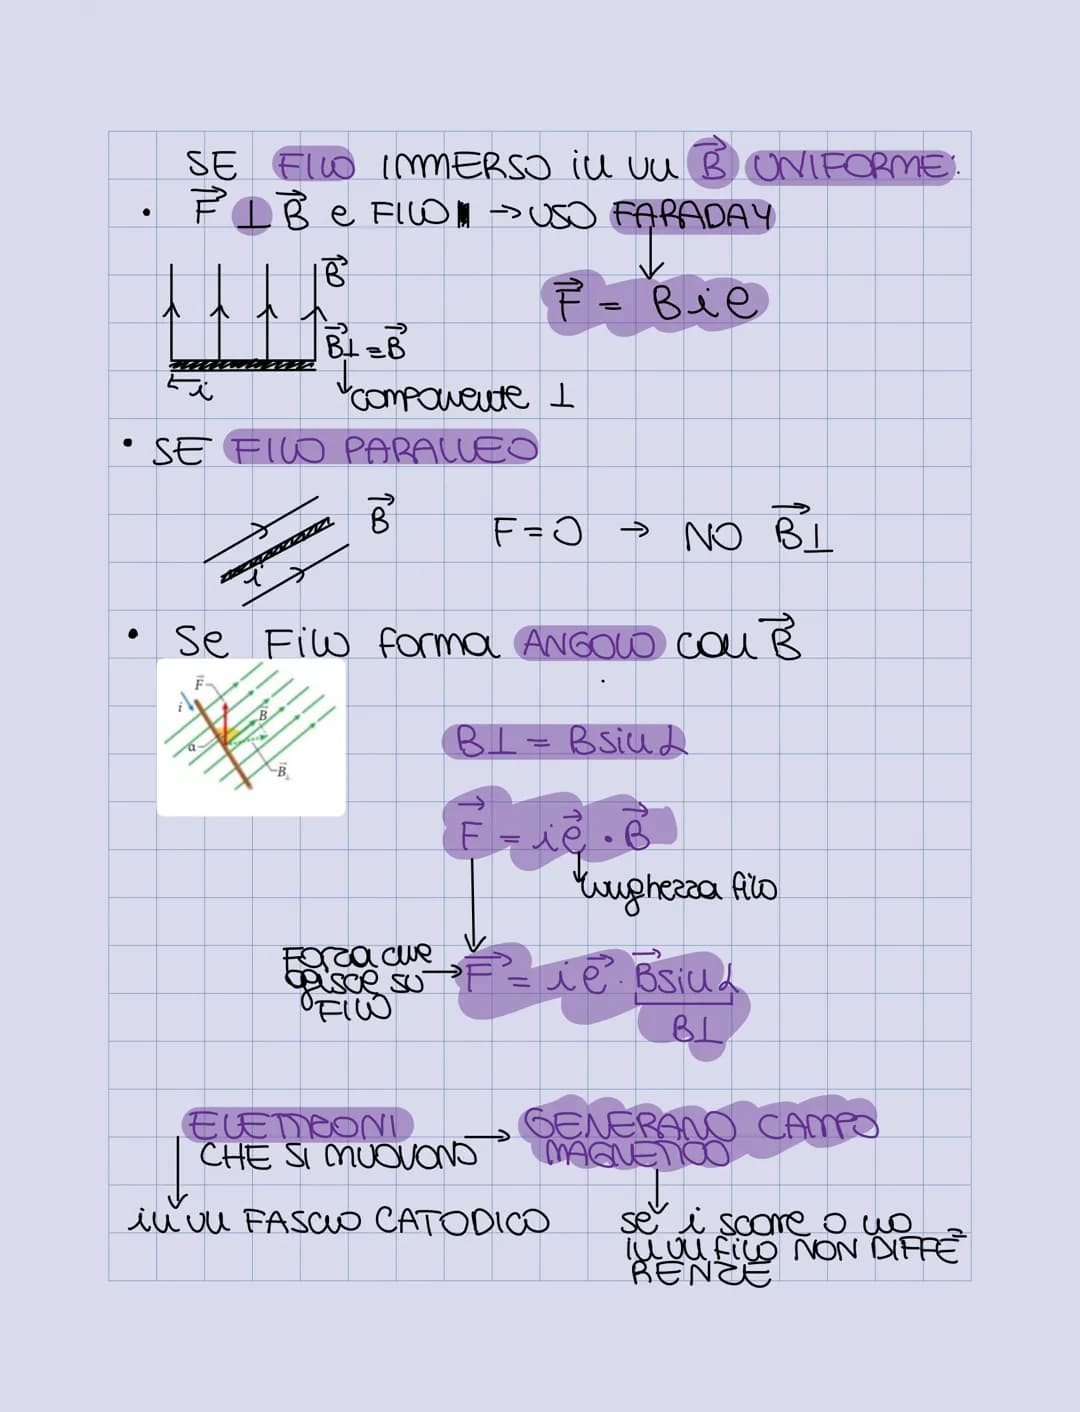 SE FILO IMMERSO in un B⃗ UNIFORME:
• F⃗ ⊥ B⃗ e FILO → USO FARADAY
B⃗
F⃗ = Bil
B⃗⊥ = B⃗
i
componente ⊥
• SE FILO PARALLELO
B⃗
F = 0 → NO B⃗⊥
i
• Se Filo forma ANGOLO con B⃗
F⃗
i
B⃗
α
B⃗⊥
B⊥ = Bsinα
F⃗ = il⃗ · B⃗
lunghezza filo
Forza che
agisce su → F⃗ = il⃗ · B⃗sinα
FILO
B⊥
ELETTRONI → GENERANO CAMPO
CHE SI MUOVONO MAGNETICO
in un FASCIO CATODICO
se i scorre o no
in un filo NON DIFFE=
RENZE